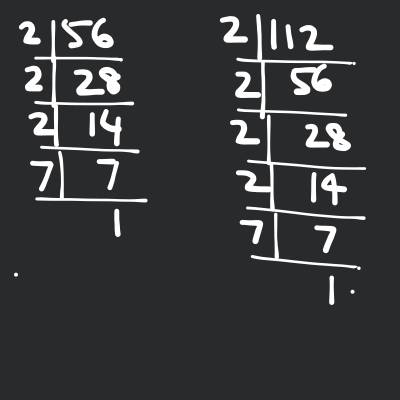 2 | 56
2 | 28
2 | 14
7 | 7
1
2 | 112
2 | 56
2 | 28
2 | 14
7 | 7
1